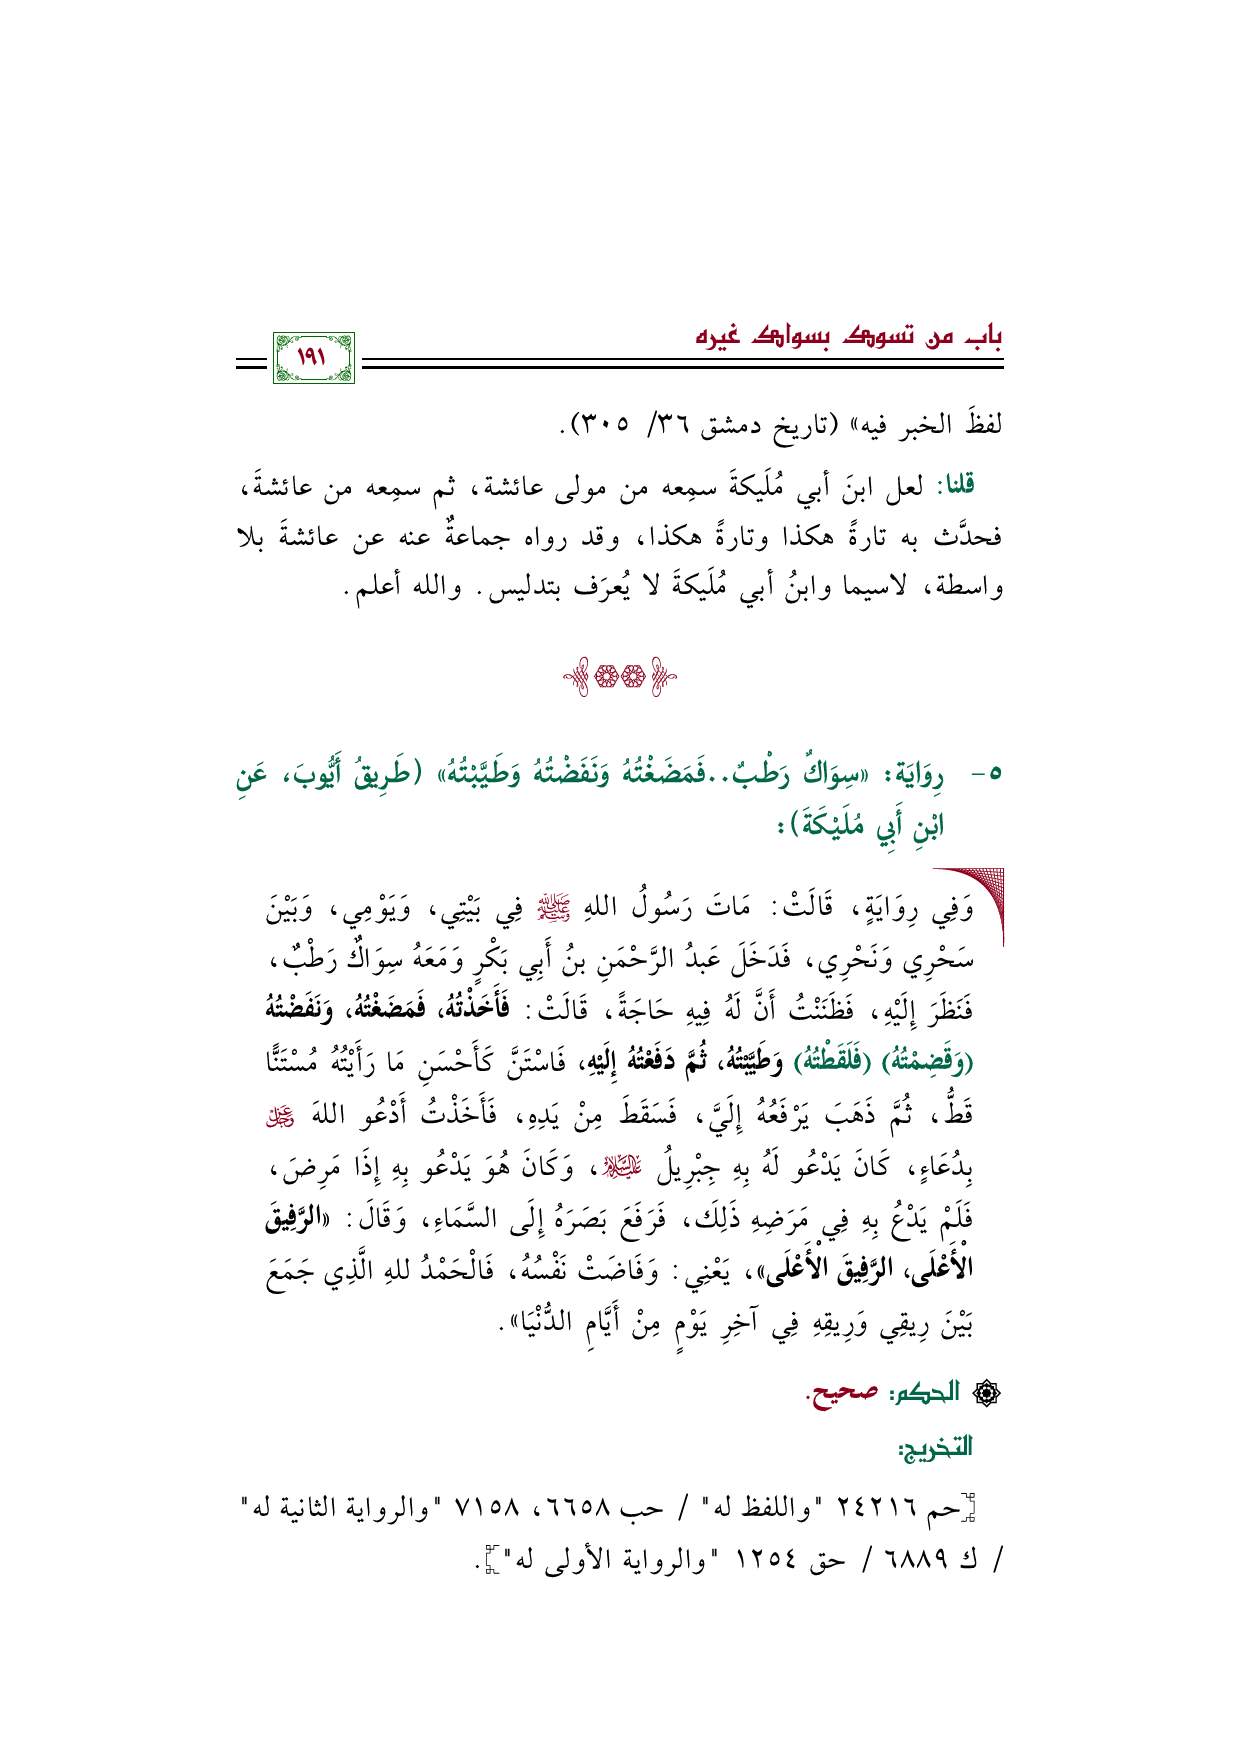 باب من تسوك بسواك غيره
١٩١
لفظَ الخبر فيه» (تاريخ دمشق ٣٦/ ٣٠٥).
قلنا: لعل ابنَ أبي مُلَيكةَ سمِعه من مولى عائشة، ثم سمِعه من عائشةَ،
فحدَّث به تارةً هكذا وتارةً هكذا، وقد رواه جماعةٌ عنه عن عائشةَ بلا
واسطة، لاسيما وابنُ أبي مُلَيكةَ لا يُعرَف بتدليس. والله أعلم.
٥- رِوَايَة: «سِوَاكٌ رَطْبٌ..فَمَضَغْتُهُ وَنَفَضْتُهُ وَطَيَّبْتُهُ» (طَرِيقُ أَيُّوبَ، عَنِ
ابْنِ أَبِي مُلَيْكَةَ):
وَفِي رِوَايَةٍ، قَالَتْ: مَاتَ رَسُولُ اللهِ ﷺ فِي بَيْتِي، وَيَوْمِي، وَبَيْنَ
سَحْرِي وَنَحْرِي، فَدَخَلَ عَبدُ الرَّحْمَنِ بنُ أَبِي بَكْرٍ وَمَعَهُ سِوَاكٌ رَطْبٌ،
فَنَظَرَ إِلَيْهِ، فَظَنَنْتُ أَنَّ لَهُ فِيهِ حَاجَةً، قَالَتْ: فَأَخَذْتُهُ، فَمَضَغْتُهُ، وَنَفَضْتُهُ
(وَقَضِمْتُهُ) (فَلَقَطْتُهُ) وَطَيَّبْتُهُ، ثُمَّ دَفَعْتُهُ إِلَيْهِ، فَاسْتَنَّ كَأَحْسَنِ مَا رَأَيْتُهُ مُسْتَنًّا
قَطُّ، ثُمَّ ذَهَبَ يَرْفَعُهُ إِلَيَّ، فَسَقَطَ مِنْ يَدِهِ، فَأَخَذْتُ أَدْعُو اللهَ عَزَّ وَجَلَّ
بِدُعَاءٍ، كَانَ يَدْعُو لَهُ بِهِ جِبْرِيلُ عَلَيْهِ السَّلَامُ، وَكَانَ هُوَ يَدْعُو بِهِ إِذَا مَرِضَ،
فَلَمْ يَدْعُ بِهِ فِي مَرَضِهِ ذَلِكَ، فَرَفَعَ بَصَرَهُ إِلَى السَّمَاءِ، وَقَالَ: «الرَّفِيقَ
الْأَعْلَى، الرَّفِيقَ الْأَعْلَى»، يَعْنِي: وَفَاضَتْ نَفْسُهُ، فَالْحَمْدُ للهِ الَّذِي جَمَعَ
بَيْنَ رِيقِي وَرِيقِهِ فِي آخِرِ يَوْمٍ مِنْ أَيَّامِ الدُّنْيَا».
الحكم: صحيح.
التخريج:
[حم ٢٤٢١٦ "واللفظ له" / حب ٦٦٥٨، ٧١٥٨ "والرواية الثانية له"
/ ك ٦٨٨٩ / حق ١٢٥٤ "والرواية الأولى له"].